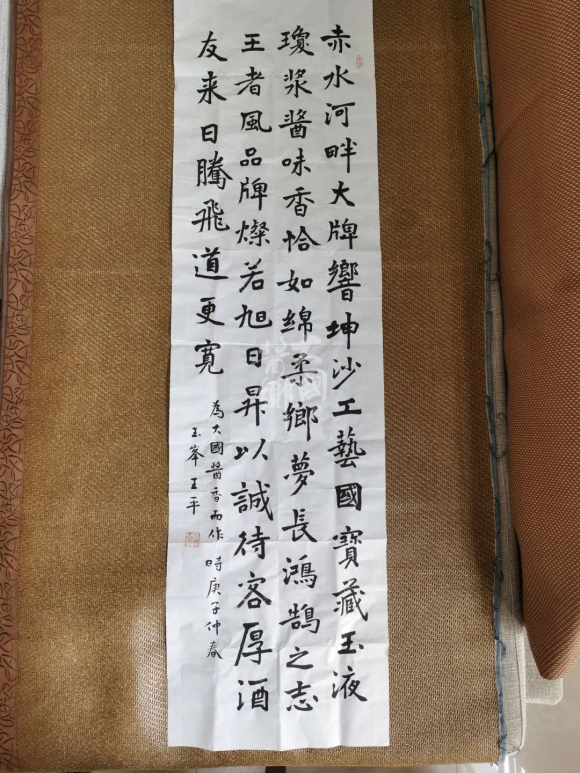 赤水河畔大牌響坤沙工藝國寶藏玉液
瓊漿醬味香恰如綿柔鄉夢長鴻鵠之志
王者風品牌燦若旭日昇以誠待客厚酒
友来日騰飛道更寬
為大國醬香而作 時庚子仲春
玉峯王平